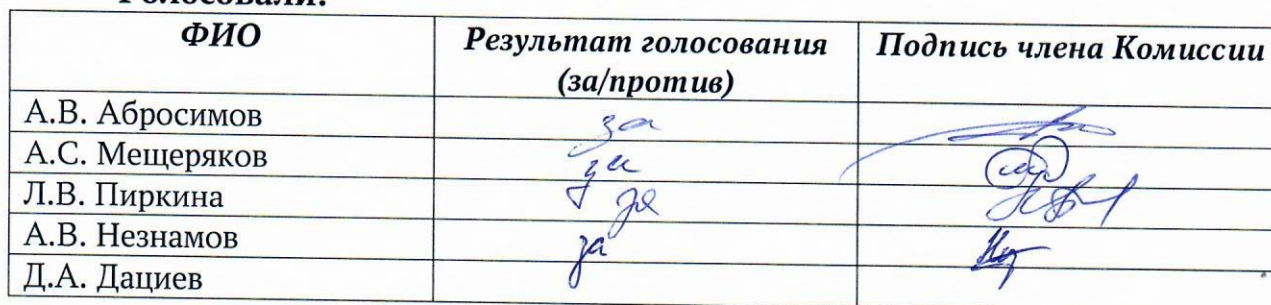 Голосовали:
ФИО Результат голосования (за/против) Подпись члена Комиссии
А.В. Абросимов за
А.С. Мещеряков за
Л.В. Пиркина за
А.В. Незнамов за
Д.А. Дациев